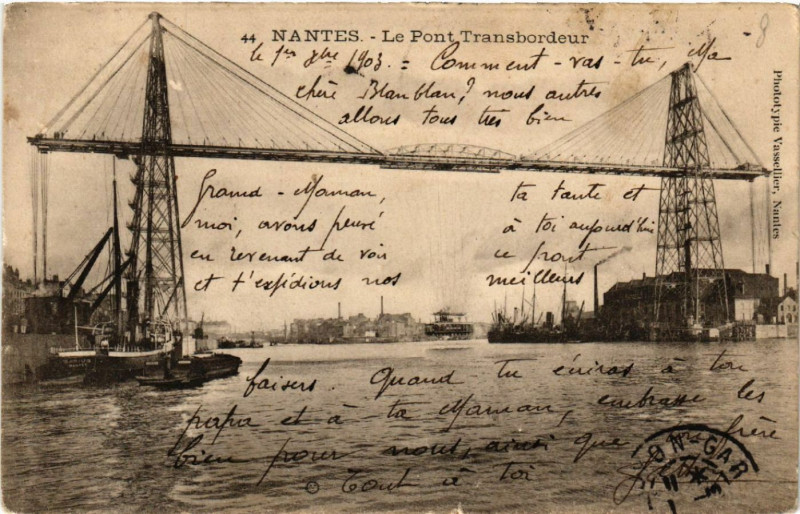 44 NANTES. - Le Pont Transbordeur
8
le 1er 9bre 1903. = Comment-vas-tu, Ma
chère Blanblan? nous autres
allons tous très bien
Grand-Maman, ta tante et
moi, avons pensé à toi aujourd'hui
en revenant de voir ce pont
et t'expédions nos meilleurs
baisers. Quand tu écriras à ton
papa et à ta Maman, embrasse les
bien pour nous, ainsi que frère
Tout à toi
Phototypie Vassellier, Nantes
ON-GAR